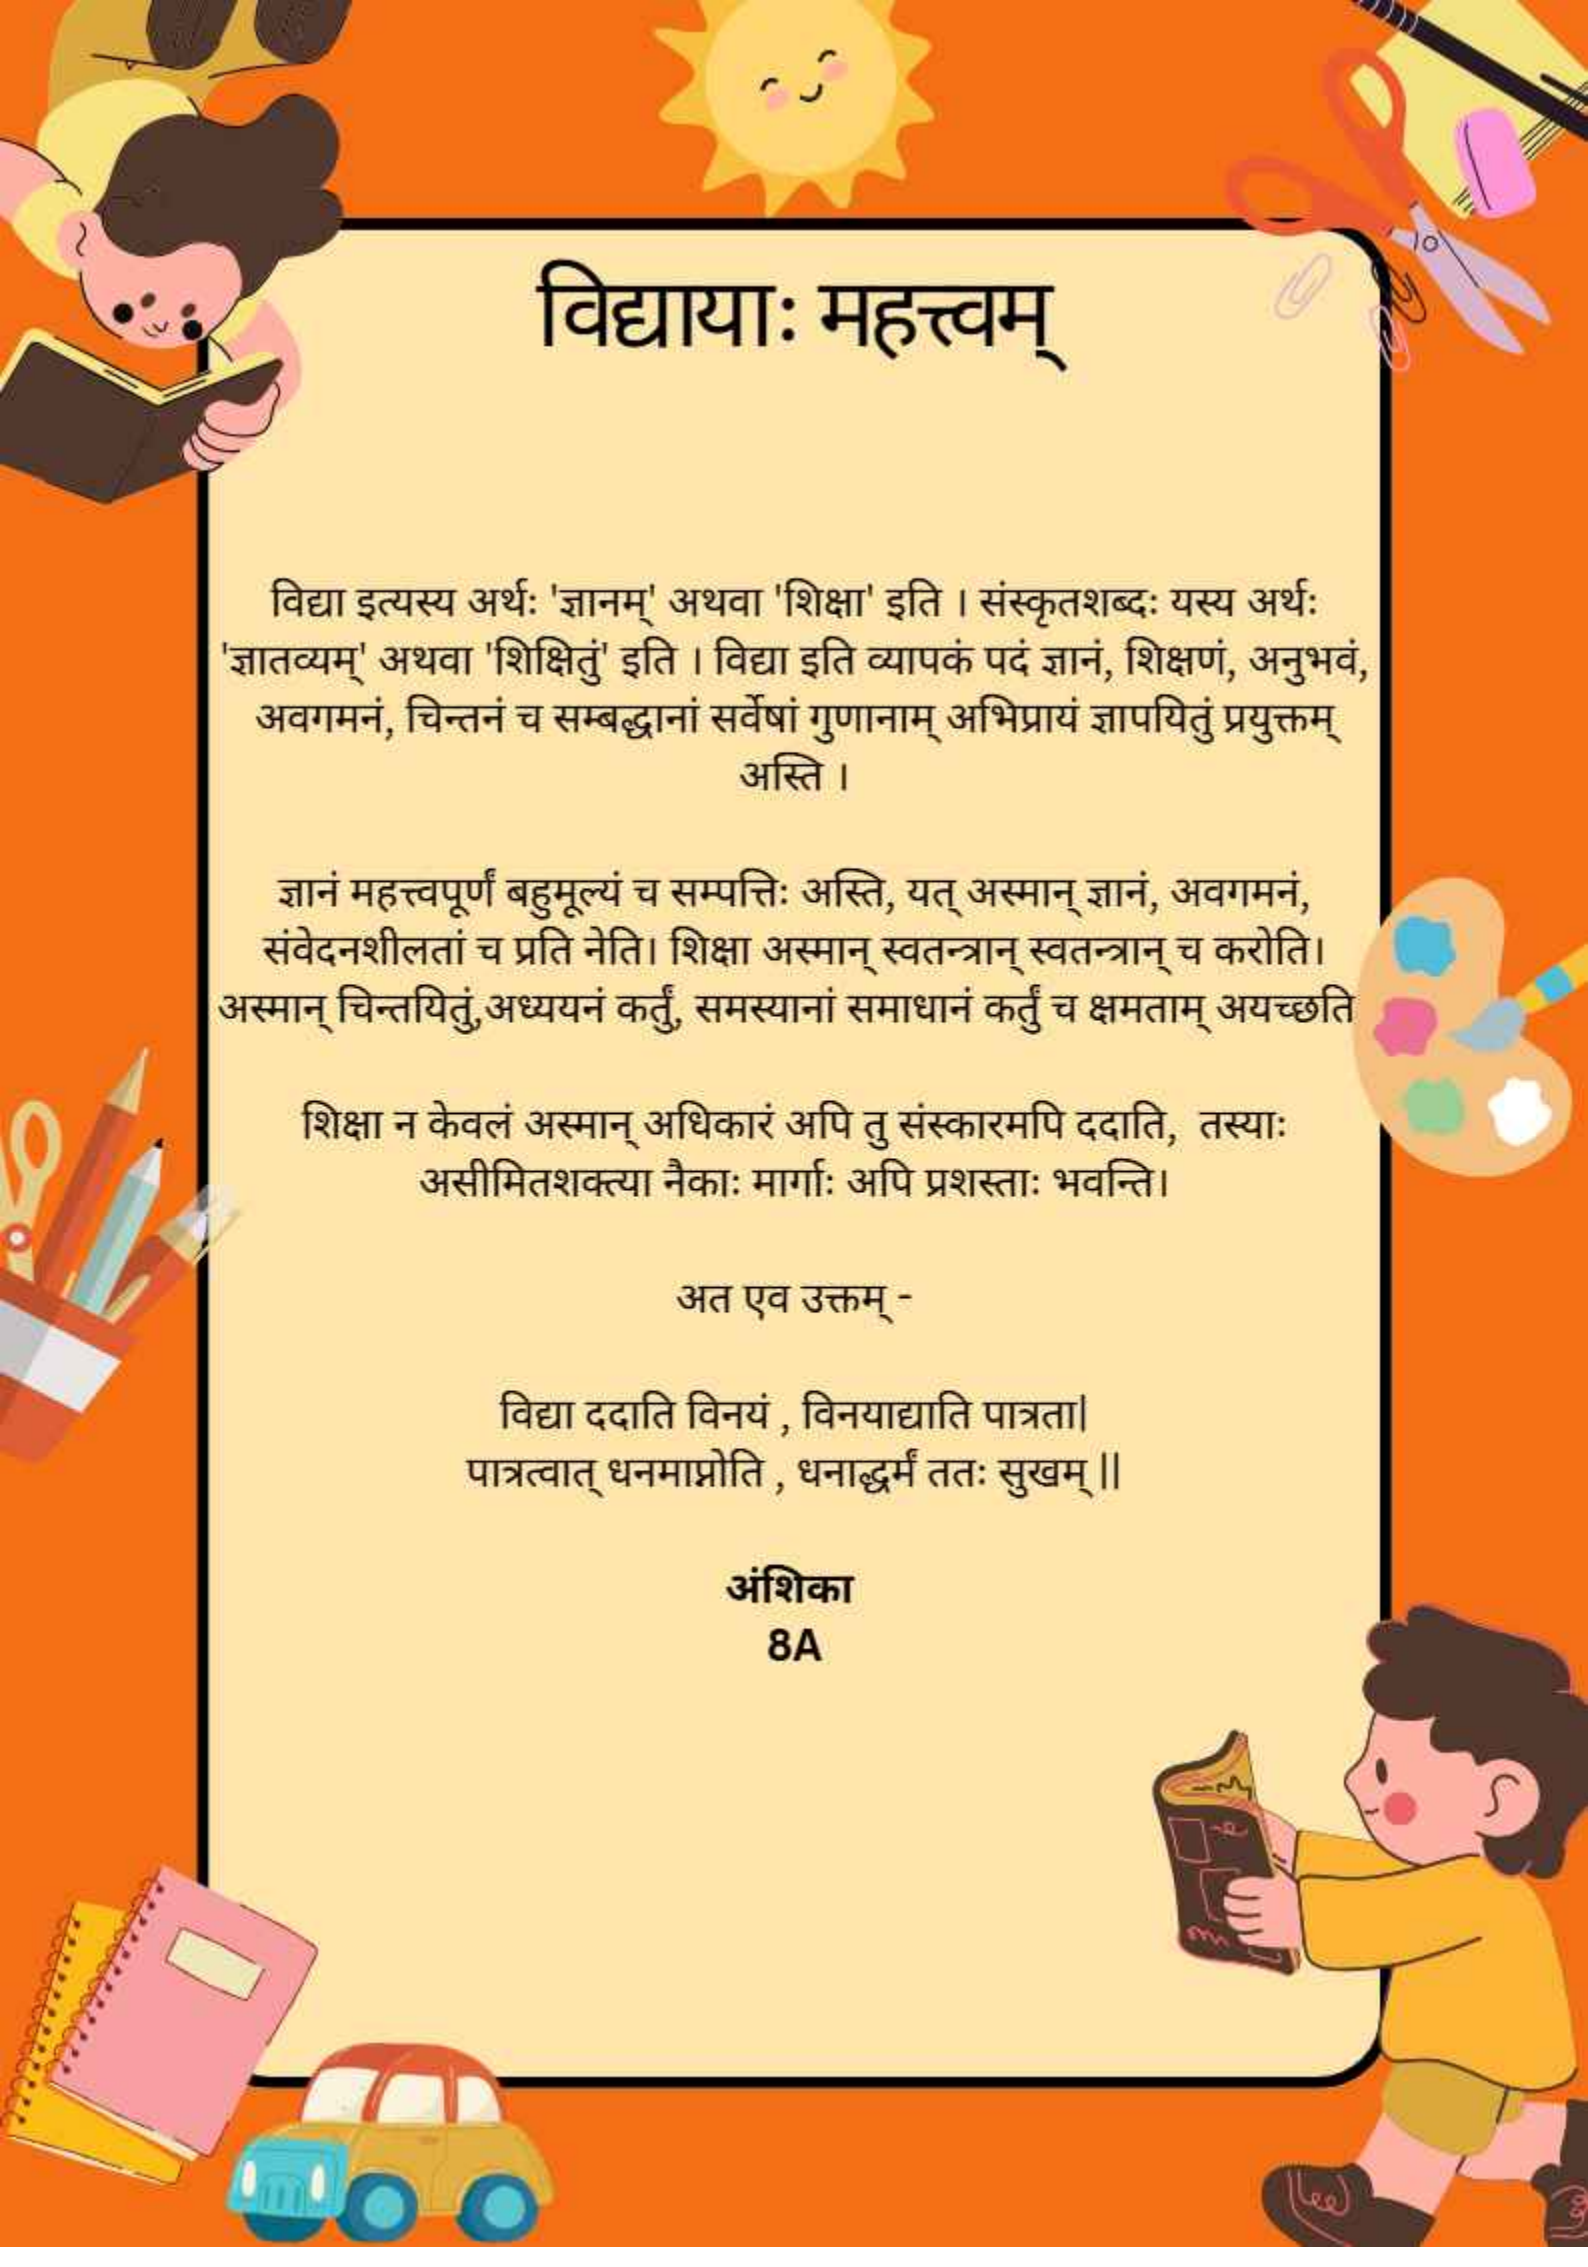 विद्यायाः महत्त्वम्
विद्या इत्यस्य अर्थः 'ज्ञानम्' अथवा 'शिक्षा' इति । संस्कृतशब्दः यस्य अर्थः
'ज्ञातव्यम्' अथवा 'शिक्षितुं' इति । विद्या इति व्यापकं पदं ज्ञानं, शिक्षणं, अनुभवं,
अवगमनं, चिन्तनं च सम्बद्धानां सर्वेषां गुणानाम् अभिप्रायं ज्ञापयितुं प्रयुक्तम्
अस्ति ।
ज्ञानं महत्त्वपूर्णं बहुमूल्यं च सम्पत्तिः अस्ति, यत् अस्मान् ज्ञानं, अवगमनं,
संवेदनशीलतां च प्रति नेति। शिक्षा अस्मान् स्वतन्त्रान् स्वतन्त्रान् च करोति।
अस्मान् चिन्तयितुं,अध्ययनं कर्तुं, समस्यानां समाधानं कर्तुं च क्षमताम् अयच्छति
शिक्षा न केवलं अस्मान् अधिकारं अपि तु संस्कारमपि ददाति, तस्याः
असीमितशक्त्या नैकाः मार्गाः अपि प्रशस्ताः भवन्ति।
अत एव उक्तम् -
विद्या ददाति विनयं , विनयाद्याति पात्रता|
पात्रत्वात् धनमाप्नोति , धनाद्धर्मं ततः सुखम् ||
अंशिका
8A